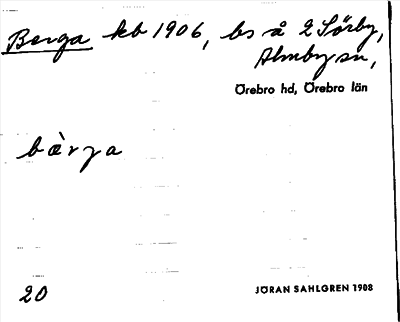 Berga kb 1906, bs å 2 Sörby,
Almby sn,
Örebro hd, Örebro län
bàrya
20
JÖRAN SAHLGREN 1908